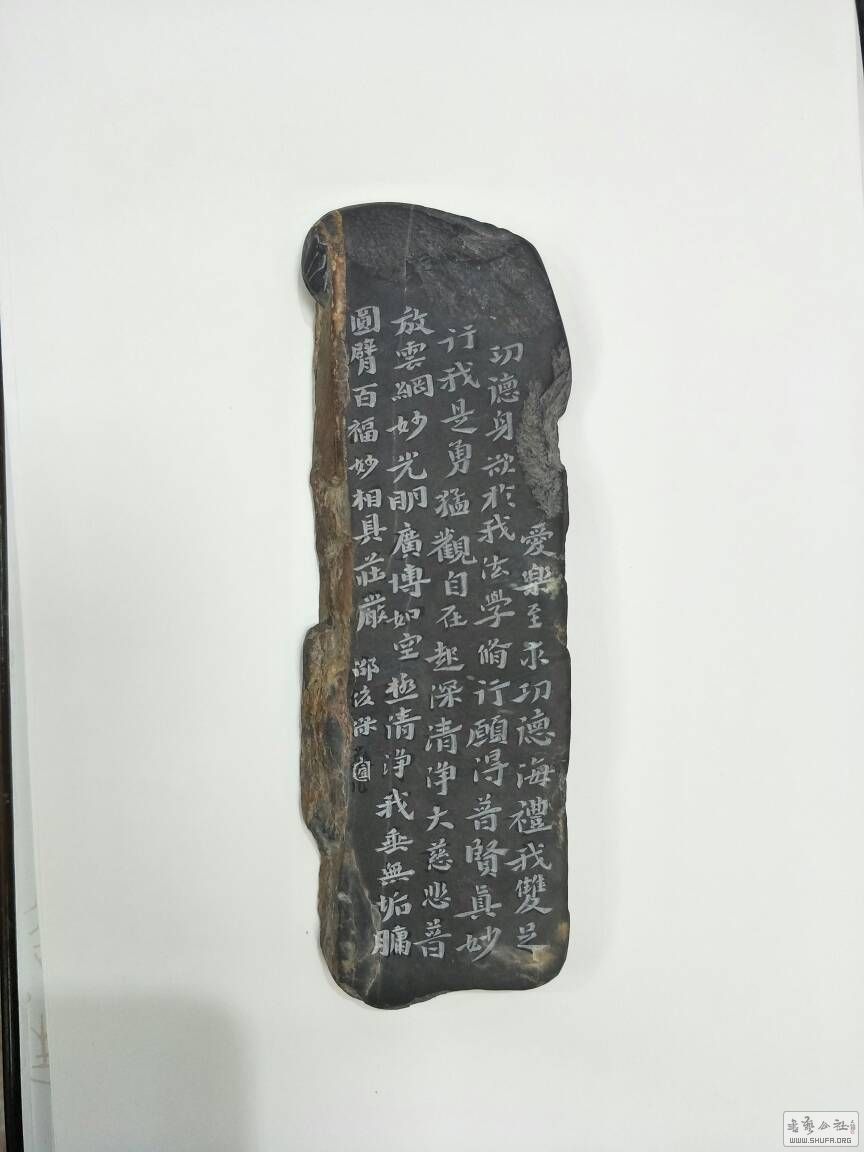 愛樂至求功德海禮我雙足
功德身欲於我法學脩行願得普賢真妙
行我是勇猛觀自在起深清淨大慈悲普
放雲網妙光明廣博如空極清淨我垂無垢臃
圓臂百福妙相具莊嚴
書藝公社
WWW.SHUFA.ORG